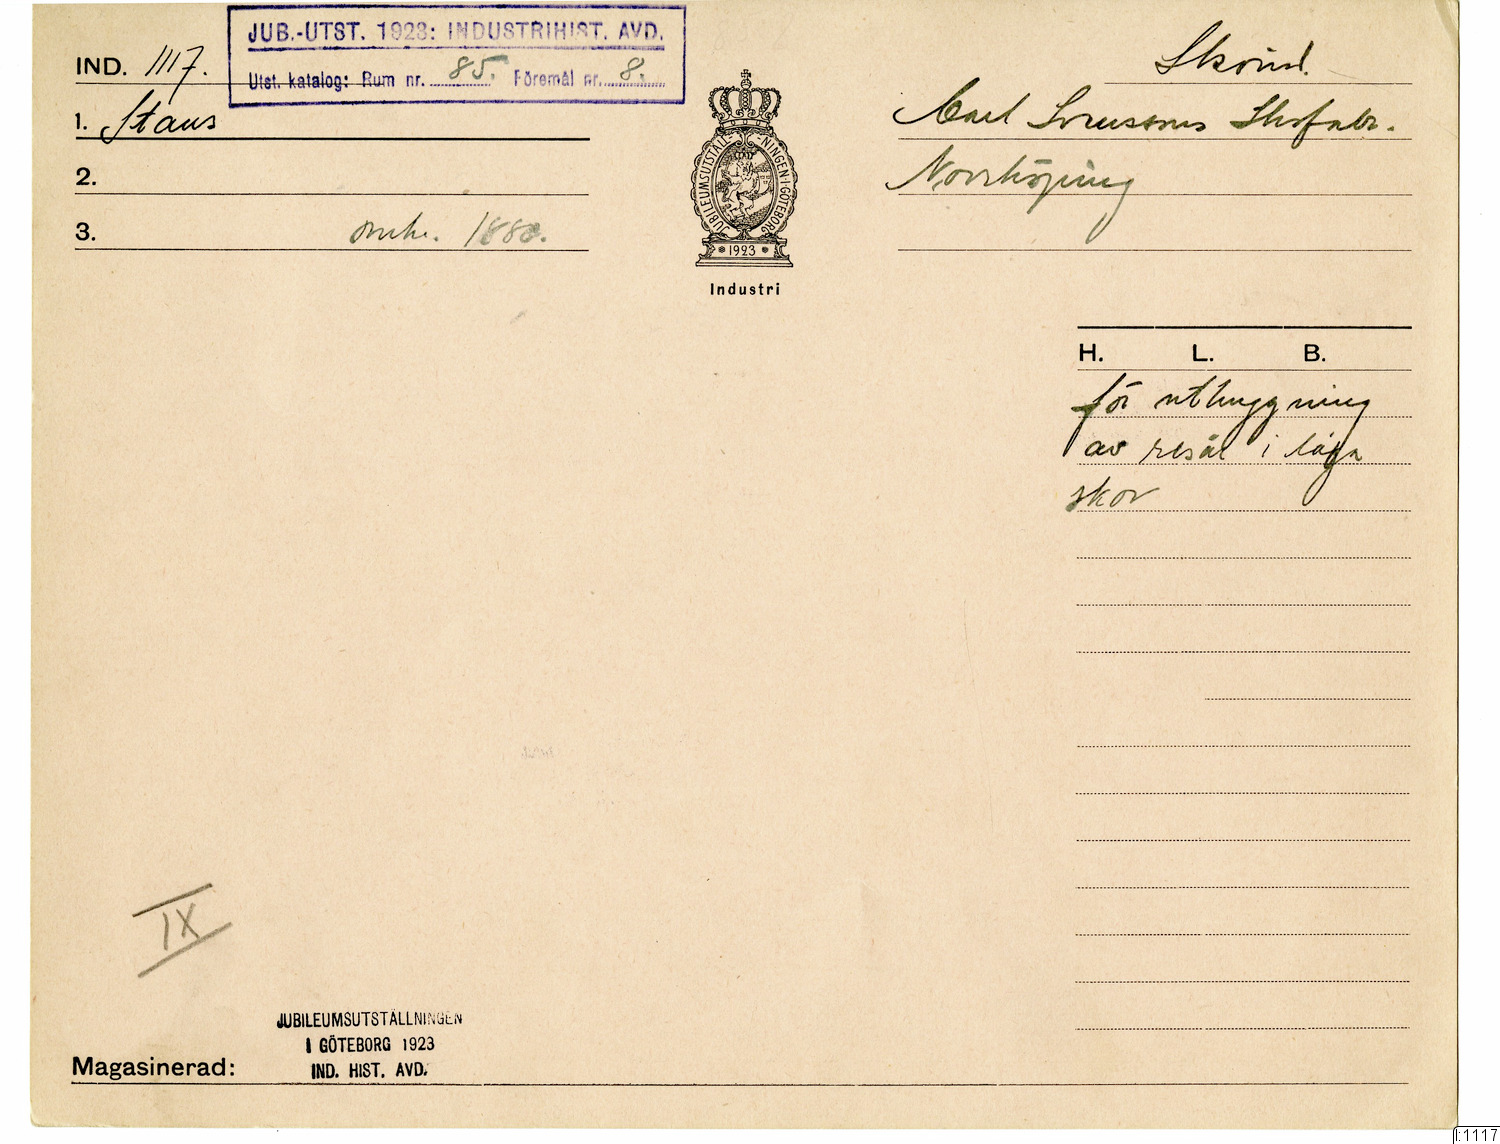 JUB.-UTST. 1923: INDUSTRIHIST. AVD.
Utst. katalog: Rum nr. 85. Föremål nr. 8.
IND. 1117.
1. Stans
2.
3. omkr. 1880.
JUBILEUMSUTSTÄLLNINGEN·I·GÖTEBORG
1923
Industri
Skoind.
Carl Svenssons Skofabr.
Norrköping
H. L. B.
för uthuggning
av resår i låga
skor
IX
JUBILEUMSUTSTÄLLNINGEN
I GÖTEBORG 1923
IND. HIST. AVD.
Magasinerad:
I:1117